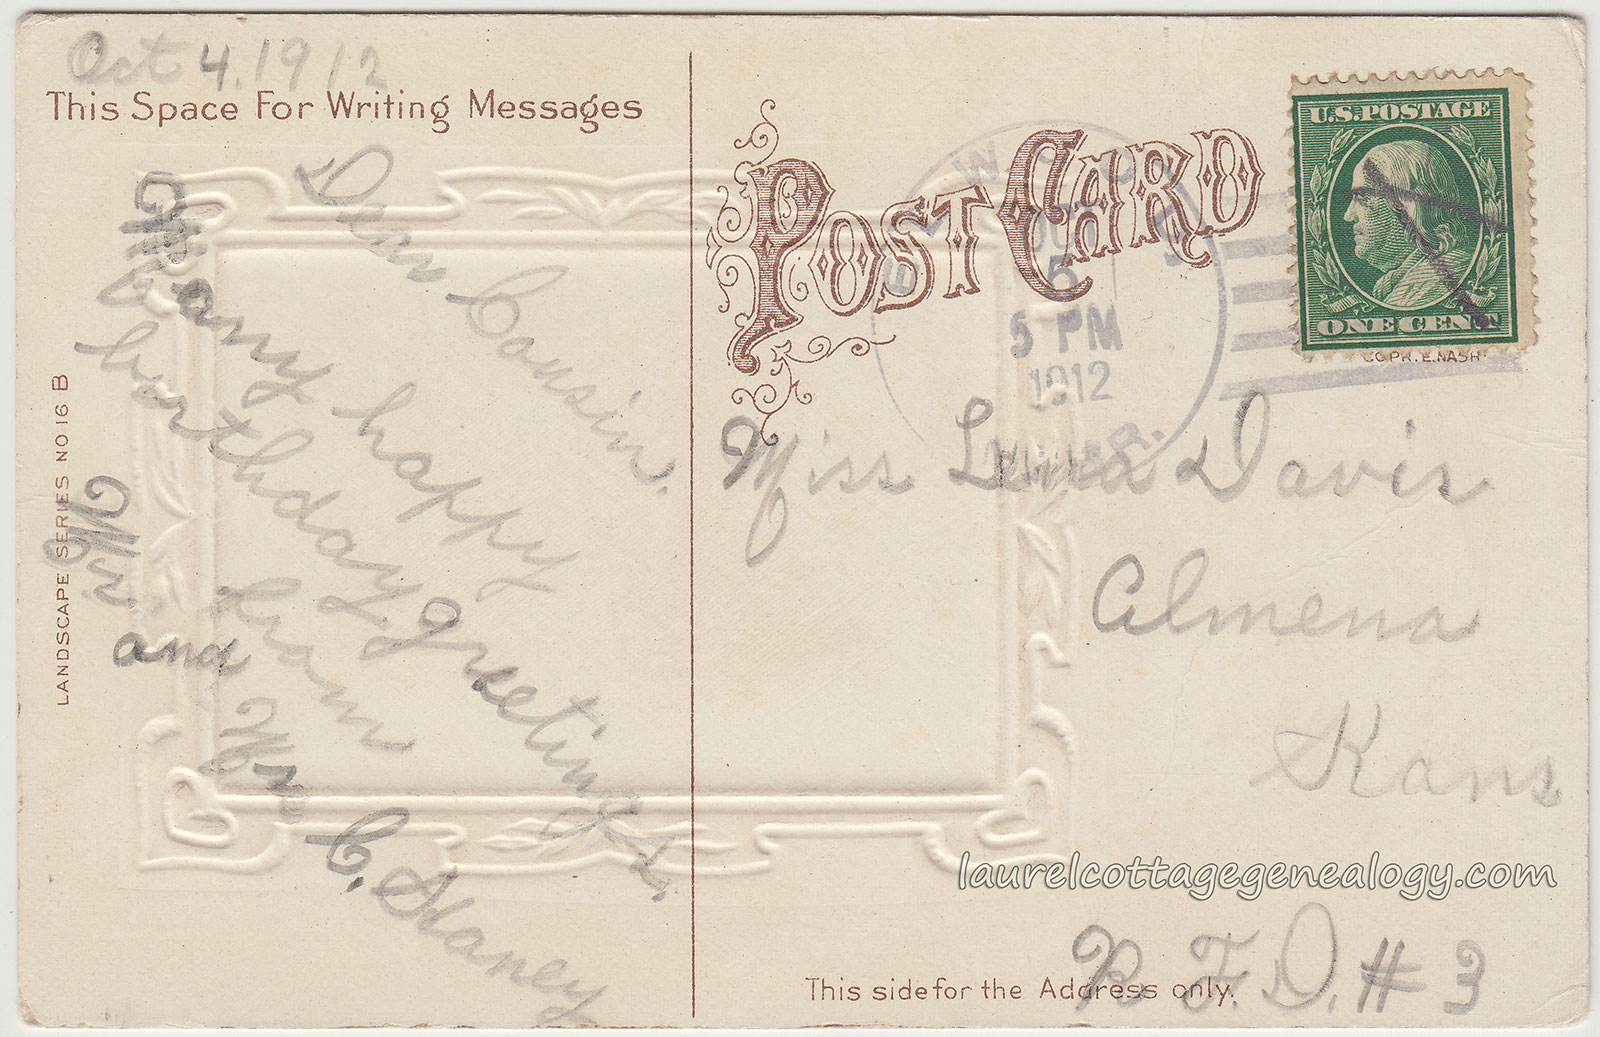 Oct 4, 1912
This Space For Writing Messages
Dear Cousin.
Many happy
birthday greetings.
from
Mr.
and
Mrs C. Slaney
LANDSCAPE SERIES NO 16 B
POST CARD
5
5 PM
1912
U.S. POSTAGE
ONE CENT
COPR. E. NASH
Miss Lena Davis
Almena
Kans
R. F. D. # 3
This side for the Address only.
laurelcottagegenealogy.com